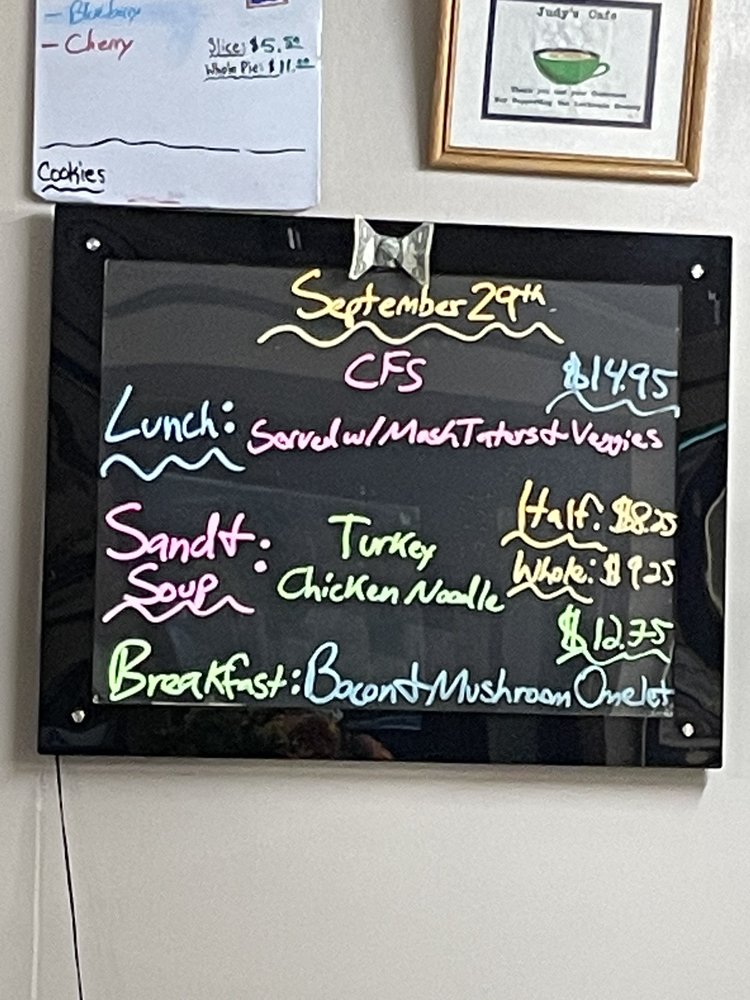 - Blueberry
- Cherry
Slice: $5.50
Whole Pie: $11.00
Cookies
Judy's Cafe
Thank you and your Customers
For Supporting the
September 29th
CFS
$14.95
Lunch: Served w/ Mash Taters & Veggies
Sand & Soup:
Turkey
Chicken Noodle
Half: $8.25
Whole: $9.25
$12.75
Breakfast: Bacon & Mushroom Omelet